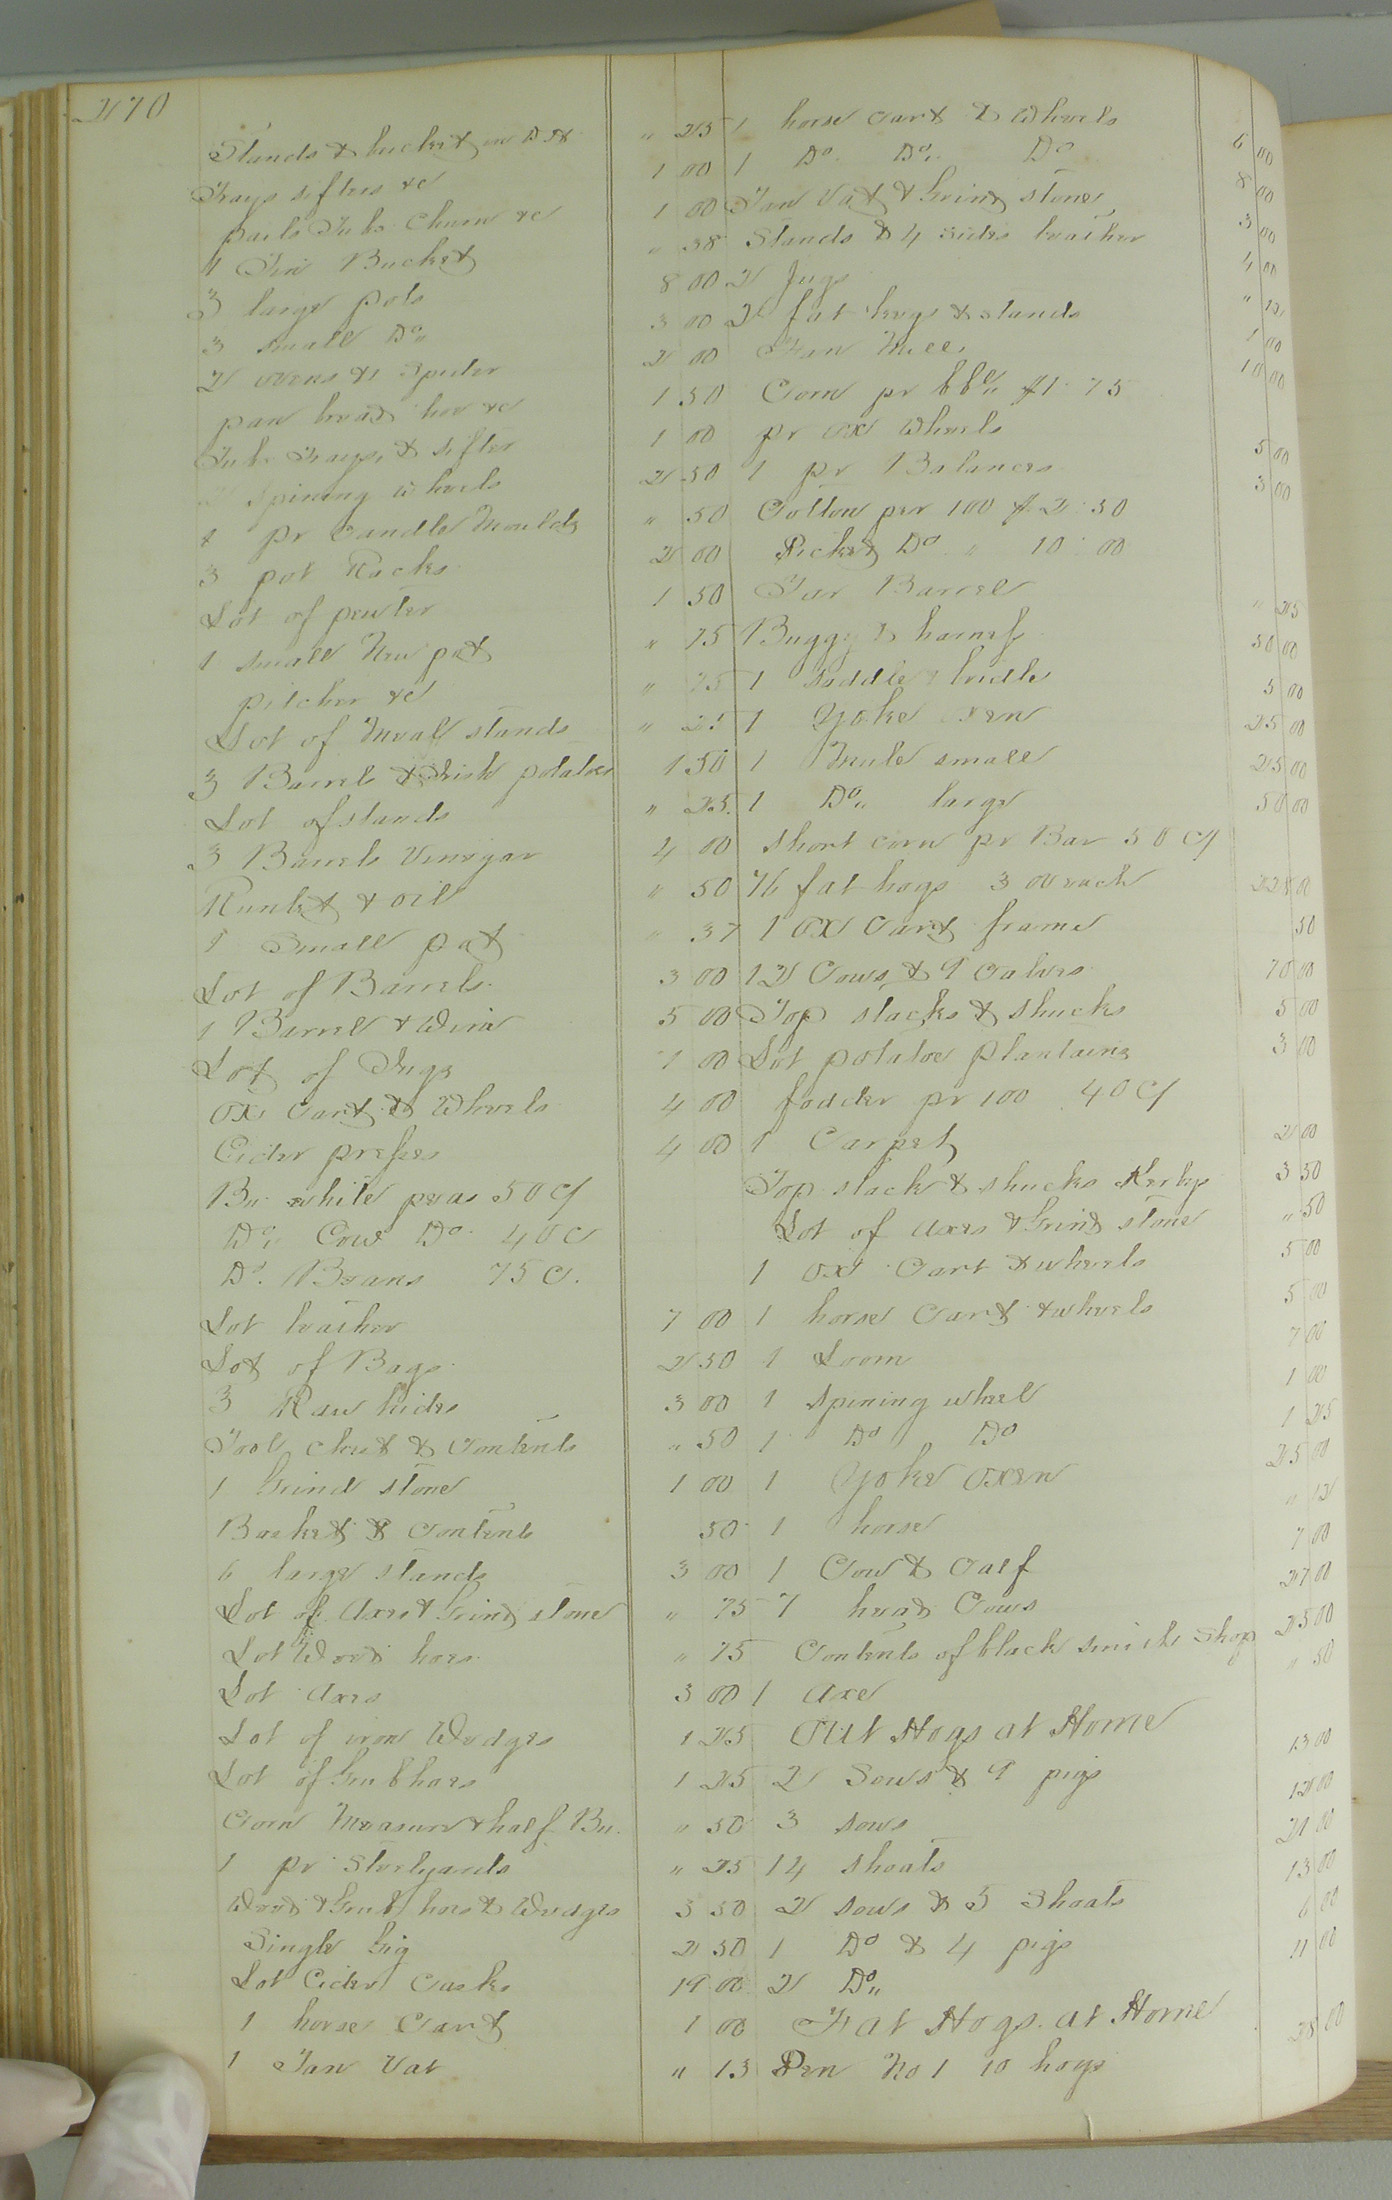 270
Stands & bucket
Trays sifters &c
pails Tubs Churn &c
1 Tin Bucket
3 large pots
3 small Do,,
2 ovens & 1 Spider
pan bread hoe &c
Tubs Trays, & sifter
2 Spining wheels
1 pr Candle Moulds
3 pot Racks
Lot of pewter
1 small New pot
pitcher &c
Lot of Meal stands
3 Barrels & Irish potatoes
Lot of stands
3 Barrels Vinegar
Runlet & oil
1 Small pot
Lot of Barrels.
1 Barrel & Wine
Lot of Jugs
Ox Cart & Wheels
Cider presses
Bu. white peas 50 cf
Do,, Cow Do. 40 c
Do. Beans 75 c.
Lot leather
Lot of Bags.
3 Raw hides
Tool chest & Contents
1 Grind stone
Basket & Contents
6 large stands
Lot of Axes & Grind stone
Lot Weed hoes.
Lot Axes
Lot of iron Wedges
Lot of Grubhoes
Corn Measure & half Bu.
1 pr Steelyards
Weed & Grub hoes & Wedges
Single Gig
Lot Cider Casks
1 horse Cart
1 Tan Vat
" 25
1 00
1 00
" 38
8 00
3 00
2 00
1 50
1 00
2 50
" 50
2 00
1 50
" 75
" 75
" 25
1 50
" 25
4 00
" 50
" 37
3 00
5 00
1 00
4 00
4 00
7 00
2 50
3 00
" 50
1 00
50
3 00
" 75
" 75
3 00
1 25
1 25
" 50
" 25
3 50
2 50
19 00
1 00
" 13
1 horse Cart & Wheels
1 Do. Do,, Do
Tan Vat & Grind stone
Stands & 4 sides leather
2 Jugs
2 fat kegs & stands
Fan Mill
Corn pr bbl,, $1. 75
pr ox Wheels
1 pr Balances
Cotton per 100 $2. 50
Picked Do " 10. 00
Tar Barrel
Buggy & harness
1 saddle & bridle
1 Yoke Oxen
1 Mule small
1 Do,, large
short corn pr Bar 50 cf
76 fat hogs 3 00 each
1 ox Cart frame
12 Cows, & 9 Calves
Top stacks & shucks
Lot potatoe Plantains
fodder pr 100 40 cf
1 Carpet
Top stack & shucks
Lot of Axes & Grind stone
1 ox Cart & wheels
1 horse Cart & wheels
1 Loom
1 spining wheel
1 Do Do
1 Yoke Oxen
1 horse
1 Cow & Calf
7 head Cows
Contents of black smith Shop
1 Axe
Out Hogs at Home
2 Sows & 9 pigs
3 sows
14 shoats
2 sows & 5 Shoats
1 Do & 4 pigs
2 Do,,
Fat Hogs. at Home
Pen No 1 10 hogs
6 00
8 00
3 00
4 00
1 00
10 00
5 00
3 00
" 25
50 00
5 00
25 00
25 00
50 00
50
70 00
5 00
3 00
2 00
3 50
" 50
5 00
5 00
7 00
1 00
1 25
25 00
" 12
7 00
27 00
25 00
" 50
13 00
12 00
21 00
13 00
6 00